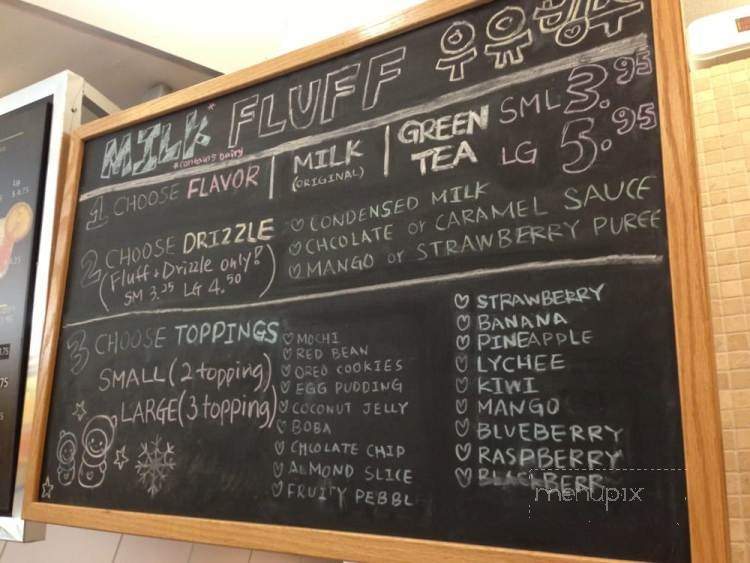 MILK* FLUFF
*contains dairy
1 CHOOSE FLAVOR
MILK
(ORIGINAL)
GREEN
TEA
SML 3.95
LG 5.95
2 CHOOSE DRIZZLE
(Fluff + Drizzle only?
SM 3.25 LG 4.50)
CONDENSED MILK
CHCOLATE or CARAMEL SAUCE
MANGO or STRAWBERRY PUREE
3 CHOOSE TOPPINGS
SMALL (2 topping)
LARGE (3 topping)
MOCHI
RED BEAN
OREO COOKIES
EGG PUDDING
COCONUT JELLY
BOBA
CHCOLATE CHIP
ALMOND SLICE
FRUITY PEBBL
STRAWBERRY
BANANA
PINEAPPLE
LYCHEE
KIWI
MANGO
BLUEBERRY
RASPBERRY
BLACKBERR
menupix